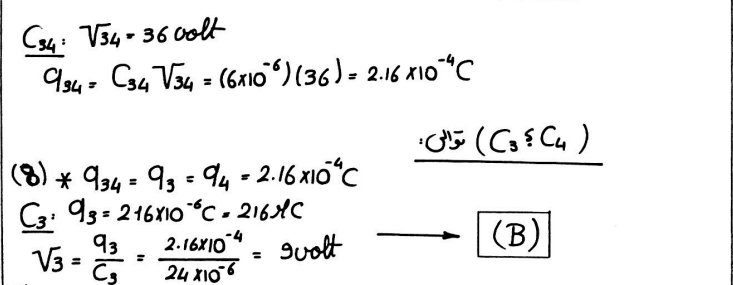 C₃₄: V₃₄ = 36 volt
q₃₄ = C₃₄ V₃₄ = (6×10⁻⁶)(36) = 2.16 ×10⁻⁴C
(C₃ و C₄) توالى:
(8) * q₃₄ = q₃ = q₄ = 2.16×10⁻⁴C
C₃: q₃ = 216×10⁻⁶C = 216 μC
V₃ = q₃/C₃ = 2.16×10⁻⁴/24×10⁻⁶ = 9 volt → (B)